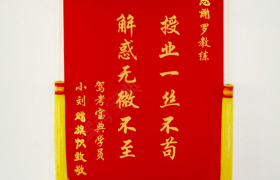 感谢罗教练
授业一丝不苟
解惑无微不至
驾考宝典学员
小刘赠旗帜致敬